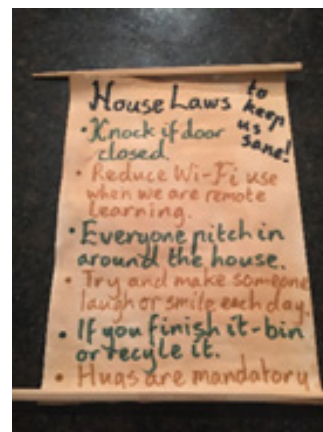 House Laws
to keep us sane!
• Knock if door
closed.
• Reduce Wi-Fi use
when we are remote
learning.
• Everyone pitch in
around the house.
• Try and make someone
laugh or smile each day.
• If you finish it-bin
or recyle it.
• Hugs are mandatory